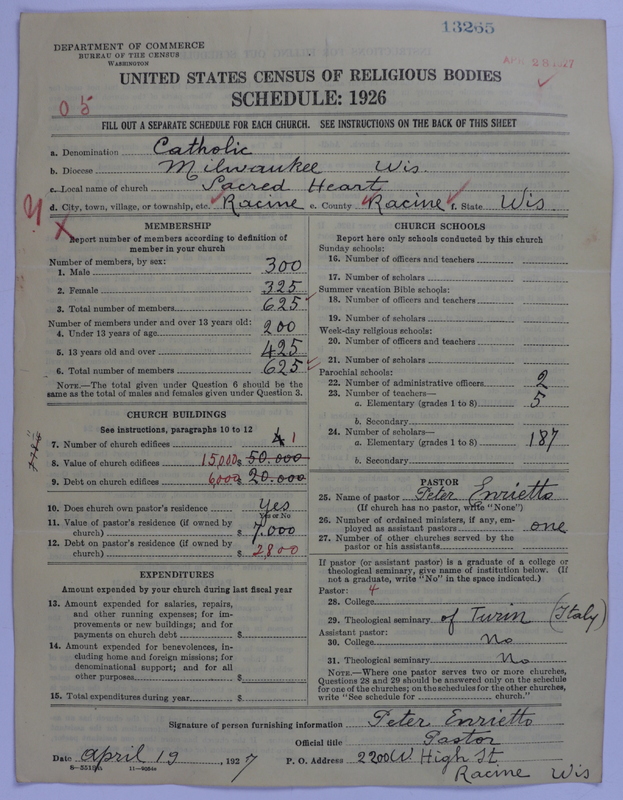 13265
DEPARTMENT OF COMMERCE
BUREAU OF THE CENSUS
WASHINGTON
APR 28 1927
UNITED STATES CENSUS OF RELIGIOUS BODIES
SCHEDULE: 1926
05
FILL OUT A SEPARATE SCHEDULE FOR EACH CHURCH. SEE INSTRUCTIONS ON THE BACK OF THIS SHEET
a. Denomination Catholic
b. Diocese Milwaukee Wis.
c. Local name of church Sacred Heart
d. City, town, village, or township, etc. Racine e. County Racine f. State Wis.
MEMBERSHIP
Report number of members according to definition of
member in your church
Number of members, by sex:
1. Male 300
2. Female 325
3. Total number of members 625
Number of members under and over 13 years old:
4. Under 13 years of age 200
5. 13 years old and over 425
6. Total number of members 625
NOTE.—The total given under Question 6 should be the
same as the total of males and females given under Question 3.
CHURCH BUILDINGS
See instructions, paragraphs 10 to 12
7. Number of church edifices 4 1
8. Value of church edifices 15,000 $ 50.000
9. Debt on church edifices 6,000 $ 20.000
10. Does church own pastor's residence Yes
Yes or No
11. Value of pastor's residence (if owned by
church) $ 7.000
12. Debt on pastor's residence (if owned by
church) $ 2800
EXPENDITURES
Amount expended by your church during last fiscal year
13. Amount expended for salaries, repairs,
and other running expenses; for im-
provements or new buildings; and for
payments on church debt $
14. Amount expended for benevolences, in-
cluding home and foreign missions; for
denominational support; and for all
other purposes $
15. Total expenditures during year $
CHURCH SCHOOLS
Report here only schools conducted by this church
Sunday schools:
16. Number of officers and teachers
17. Number of scholars
Summer vacation Bible schools:
18. Number of officers and teachers
19. Number of scholars
Week-day religious schools:
20. Number of officers and teachers
21. Number of scholars
Parochial schools:
22. Number of administrative officers 2
23. Number of teachers—
a. Elementary (grades 1 to 8) 5
b. Secondary
24. Number of scholars—
a. Elementary (grades 1 to 8) 187
b. Secondary
PASTOR
25. Name of pastor Peter Enrietto
(If church has no pastor, write "None")
26. Number of ordained ministers, if any, em-
ployed as assistant pastors one
27. Number of other churches served by the
pastor or his assistants
If pastor (or assistant pastor) is a graduate of a college or
theological seminary, give name of institution below. (If
not a graduate, write "No" in the space indicated.)
Pastor: 4
28. College
29. Theological seminary of Turin (Italy)
Assistant pastor:
30. College No
31. Theological seminary No
NOTE.—Where one pastor serves two or more churches,
Questions 28 and 29 should be answered only on the schedule
for one of the churches; on the schedules for the other churches,
write "See schedule for church."
Signature of person furnishing information Peter Enrietto
Official title Pastor
Date April 19, 1927 P. O. Address 2200 W. High St
Racine Wis